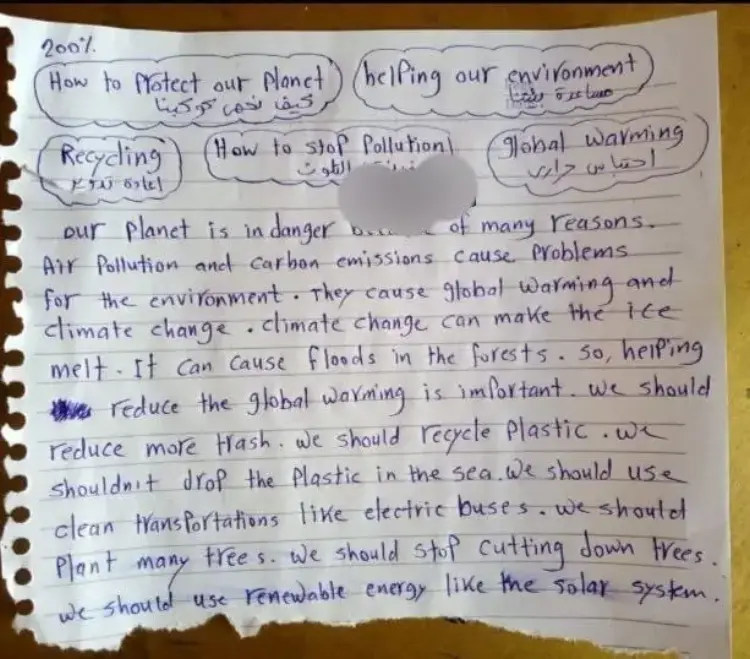 200%
How to Protect our Planet
helping our environment
كيف نحمى كوكبنا
مساعدة بيئتنا
Recycling
How to stop Pollution
global warming
اعادة
التلوث
احتباس حرارى
our planet is in danger of many reasons.
Air Pollution and carbon emissions cause Problems
for the environment. They cause global warming and
climate change. climate change can make the ice
melt. It can cause floods in the forests. so, helping
reduce the global warming is important. we should
reduce more trash. we should recycle plastic. we
shouldn't drop the plastic in the sea. we should use
clean transportations like electric buses. we should
Plant many trees. we should stop cutting down trees.
we should use renewable energy like the solar system.